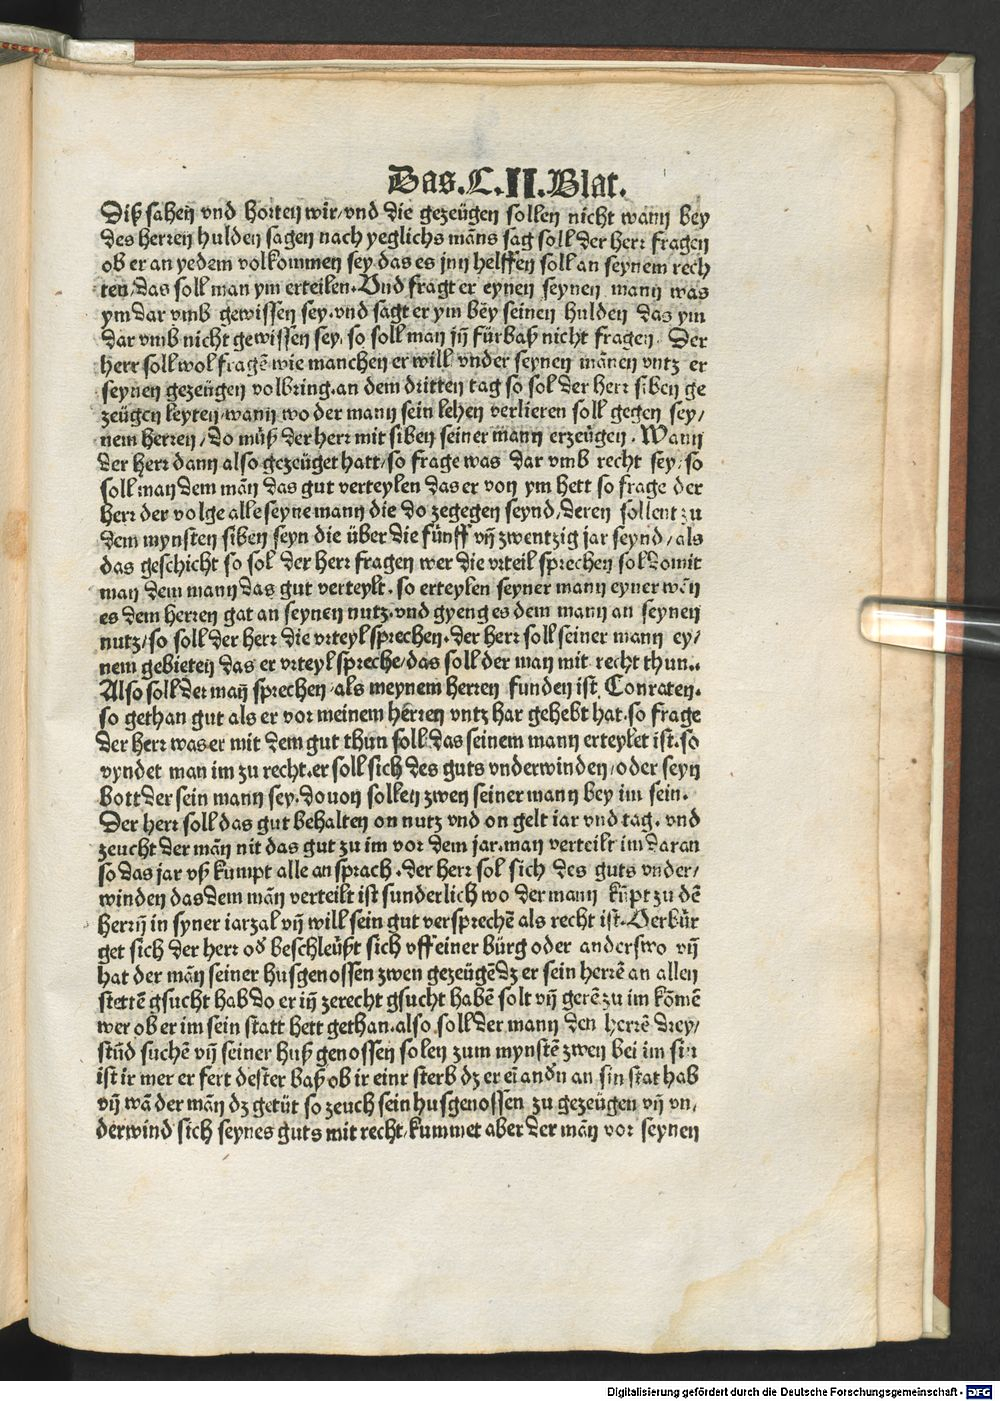 Das.C.II.Blat.
Diß sahen vnd horten wir/vnd die gezeügen sollen nicht wann bey
des herren hulden sagen nach yeglichs mãns sag soll der herr fragen
ob er an yedem volkommen sey das es jnn helffen soll an seynem rech
ten/das soll man ym erteilen.Vnd fragt er eynen seynen mann was
ym dar vmb gewissen sey.vnd sagt er ym bey seinen hulden das ym
dar vmb nicht gewissen sey, so soll man jn̄ fürbaß nicht fragen. Der
herr soll wol fragē wie manchen er will vnder seynen mãnen vntz er
seynen gezeügen volbring.an dem dritten tag so sol der herr siben ge
zeügen leyten/wann wo der mann sein lehen verlieren soll gegen sey/
nem herren/do müß der herr mit siben seiner mann erzeügen. Wann
der herr dann also gezeüget hatt/so frage was dar vmb recht sey/so
soll man dem mãn das gut verteylen das er von ym hett so frage der
herr der volge alle seyne mann die do zegegen seynd/deren sollent zu
dem mynsten siben seyn die über die fünff vn̄ zwentzig jar seynd/als
das geschicht so sol der herr fragen wer die vrteil sprechen sol domit
man dem mann das gut verteylt.so erteylen seyner mann eyner wãn
es dem herren gat an seynen nutz.vnd gyeng es dem mann an seynen
nutz/so soll der herr die vrteyl sprechen.der herr soll seiner mann ey/
nem gebieten das er vrteyl spreche/das soll der man mit recht thun..
Also soll der man̄ sprechen/als meynem herren funden ist. Conraten.
so gethan gut als er vor meinem herren vntz har gehebt hat.so frage
der herr was er mit dem gut thun soll das seinem mann erteylet ist.so
vyndet man im zu recht.er soll sich des guts vnderwinden/oder seyn
bott der sein mann sey.douon sollen zwen seiner mann bey im sein.
Der herr soll das gut behalten on nutz vnd on gelt iar vnd tag. vnd
zeucht der mãn nit das gut zu im vor dem jar.man verteilt im daran
so das jar vß kumpt alle ansprach.der herr sol sich des guts vnder/
winden das dem mãn verteilt ist sunderlich wo der mann kn̄pt zu dē
herrn̄ in syner iarzal vn̄ will sein gut versprechē als recht ist.Verbür
get sich der herr oď beschleüßt sich vff einer bürg oder anderswo vn̄
hat der mãn seiner husgenossen zwen gezeügē dz er sein herrē an allen
stettē gsucht hab do er in̄ zerecht gsucht habē solt vn̄ gerē zu im kōmē
wer ob er im sein statt hett gethan.also soll der mann den herrē drey/
stūd suchē vn̄ seiner huß genossen solen zum mynstē zwen bei im sin
ist ir mer er fert dester baß ob ir einr sterb dz er eī anďn an sin stat hab
vn̄ wã der mãn dz getüt so zeuch sein husgenossen zu gezeügen vn̄ vn,
derwind sich seynes guts mit recht/kummet aber der mãn vor seynen
Digitalisierung gefördert durch die Deutsche Forschungsgemeinschaft - DFG